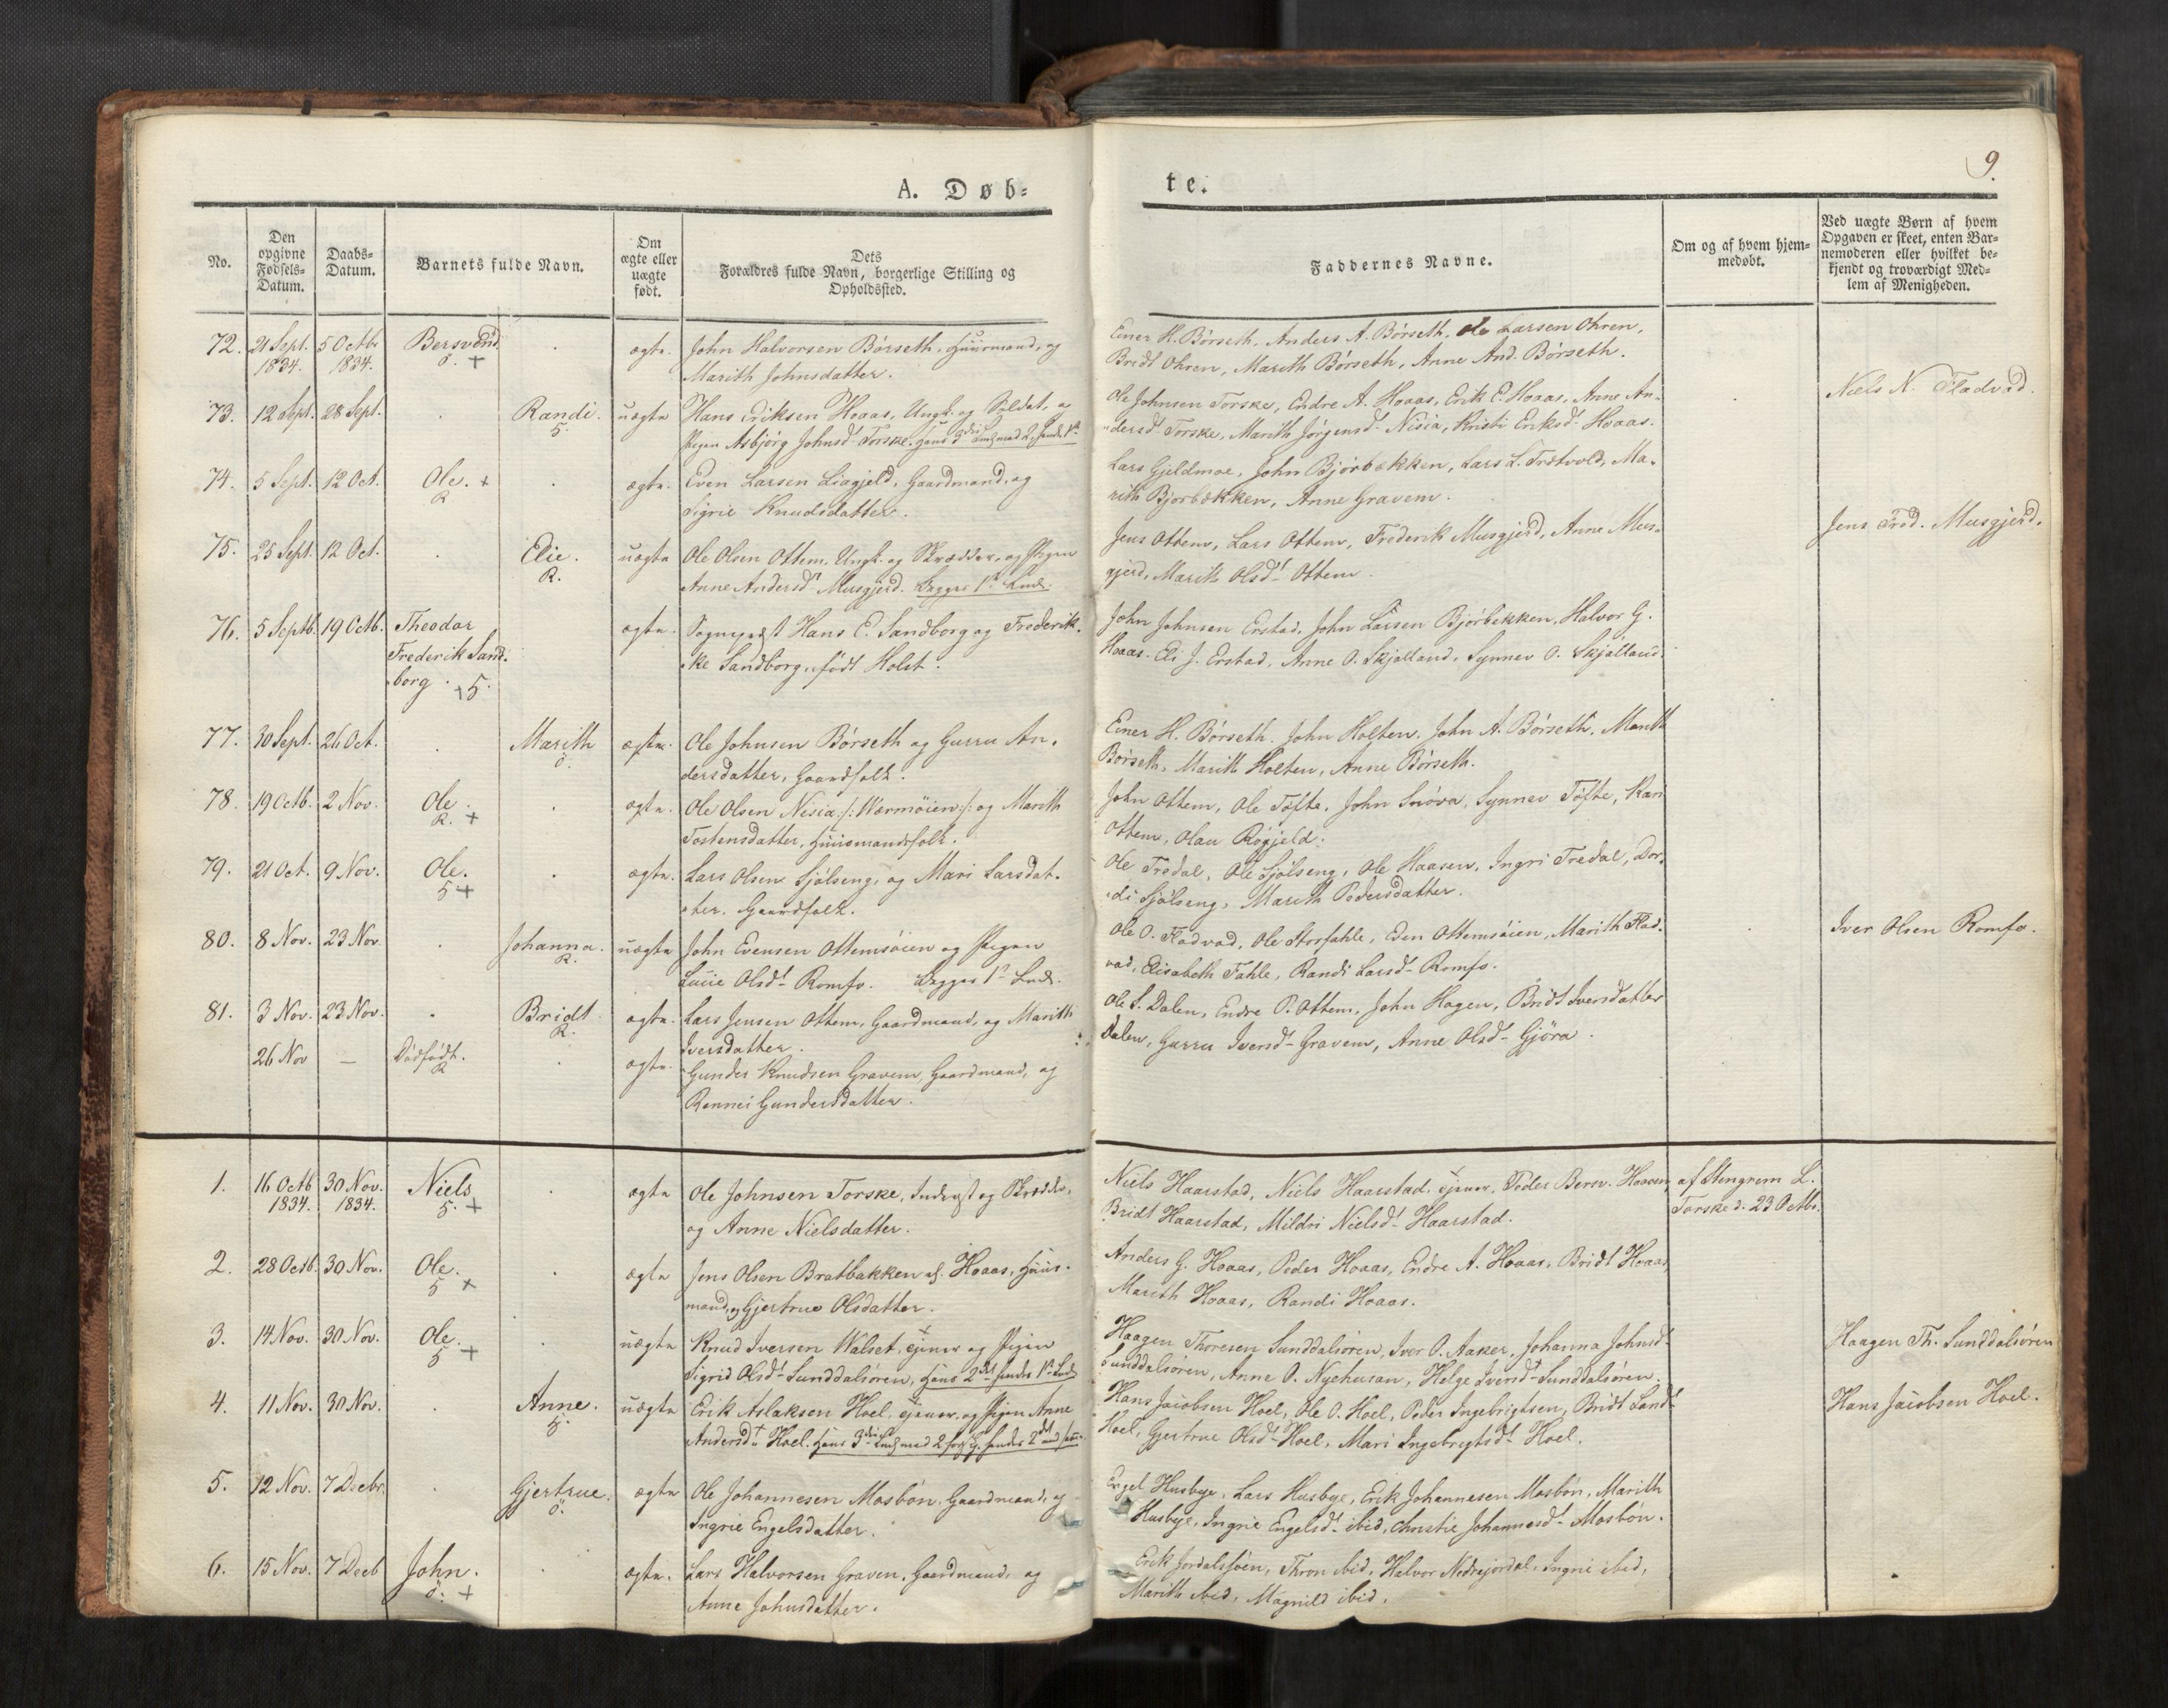 A. Døb=
te.
9.
No.
Den opgivne Fødsels= Datum.
Daabs= Datum.
Barnets fulde Navn.
Om ægte eller uægte født.
Dets Forældres fulde Navn, borgerlige Stilling og Opholdssted.
Faddernes Navne.
Om og af hvem hjem= medøbt.
Ved uægte Børn af hvem Opgaven er skeet, enten Bar= nemoderen eller hvilket be= kjendt og troværdigt Med= lem af Menigheden.
72. 21 Sept. 1834. 5 Octbr 1834. Bersvend ö. + ægte. John Halvorsen Börseth, Huusmand, og
Marith Johnsdatter.
Einer H. Börseth, Anders A. Börseth, Ole Larsen Ohren,
Bridt Ohren, Marith Börseth, Anne And. Börseth.
73. 12 Sept. 28 Sept. Randi. 5. uægte Hans Eriksen Hoaas, Ungk. og Soldat, og
Pigen Asbjörg Johnsdt Torske. Hans 3die Leiermaal 2, hendes 1ste
Ole Johnsen Torske, Endre A. Hoaas, Erik E. Hoaas, Anne An-
dersdt Torske, Marith Jörgensdt Nisia, Kristi Eriksdt Hoaas.
Niels N. Fladvad.
74. 5 Sept. 12 Oct. Ole. + R ægte. Even Larsen Liagjeld, Gaardmand, og
Sigrie Knudsdatter.
Lars Gjeldmoe, John Bjørbekken, Lars L. Tretvold, Ma-
rith Bjorbekken, Anne Gravem.
75. 25 Sept. 12 Oct. Elie. R. uægte Ole Olsen Ottem, Ungk. og Skrædder, og Pigen
Anne Andersdt Musgjerd. Begges 1ste Leierm.
Jens Ottem, Lars Ottem, Frederik Musgjerd, Anne Mus-
gjerd, Marith Olsdt Ottem.
Jens Fred. Musgjerd.
76. 5 Septb. 19 Octb. Theodor
Frederik Sand-
borg. +5. ægte. Sognepræst Hans E. Sandborg og Frederik-
ke Sandborg, född Holst.
John Johnsen Erstad, John Larsen Bjørbekken, Halvor G.
Hoaas. Eli J. Erstad, Anne O. Skjølland, Synnev O. Skjølland.
77. 30 Sept. 26 Oct. Marith ö. ægte. Ole Johnsen Börseth og Gurru An-
dersdatter, Gaardfolk.
Einer H. Börseth. John Holten. John A. Börseth, Marith
Börseth, Marith Holten, Anne Börseth.
78. 19 Octb. 2 Nov. Ole. R. + ægte. Ole Olsen Nisia /: Wærmöien :/ og Marith
Tostensdatter, Huusmandsfolk.
John Ottem, Ole Töfte, John Snöva, Synnev Töfte, Kari
Ottem, Olau Rögjeld.
79. 21 Oct. 9 Nov. Ole. 5 + ægte. Lars Olsen Sjölseng, og Mari Larsdat-
ter. Gaardfolk.
Ole Tredal, Ole Sjölseng, Ole Haasen, Ingri Tredal, Dor-
di Sjölseng, Marith Pedersdatter.
80. 8 Nov. 23 Nov Johanna. R. uægte John Evensen Ottemsöien og Pigen
Lucie Olsdt Romfo. Begges 1ste Leierm.
Ole O. Fladvad, Ole Storfahle, Even Ottemsöien, Marith Flad-
vad, Elisabeth Fahle, Randi Larsdt Romfo.
Iver Olsen Romfo.
81. 3 Nov. 23 Nov. Bridt R. ægte. Lars Jensen Ottem, Gaardmand, og Marith
Iversdatter.
Ole S. Dalen, Endre P. Ottem, John Hagen, Bridt Iversdatter
Dalen, Gurru Iversdt Gravem, Anne Olsdt Gjöra.
26 Nov — Dödfödt. R ægte. Gunder Knudsen Gravem, Gaardmand, og
Rennei Gundersdatter.
1. 16 Octb 1834. 30 Nov. 1834. Niels 5. + ægte Ole Johnsen Torske, Inderst og Skrædder,
og Anne Nielsdatter.
Niels Haarstad, Niels Haarstad, ejener, Peder Bersv. Hoven,
Bridt Haarstad, Mildri Nielsdt Haarstad.
af Stengrem L.
Torske d. 23 Octbr.
2. 28 Octb. 30 Nov. Ole. 5 + ægte Jens Olsen Bratbakken af Hoaas, Huus-
mand, og Gjertrue Olsdatter.
Anders G. Hoaas, Peder Hoaas, Endre A. Hoaas, Bridt Hoaas
Marith Hoaas, Randi Hoaas.
3. 14 Nov. 30 Nov. Ole. 5 + uægte Knud Iversen Walset, tjener og Pigen
Sigrid Olsdt Sunddalsören, Hans 2det hendes 1ste Leierm
Haagen Thoresen Sunddalsören, Iver O. Aaker, Johanna Johnsdt
Sunddalsören, Anne O. Nyehusan, Helge Iversdt Sunddalsören.
Haagen Th. Sunddalsören
4. 11 Nov. 30 Nov. Anne. 5. uægte Erik Aslaksen Hoel, tjener, og Pigen Anne
Andersdt Hoel.
Hans Jacobsen Hoel, Ole O. Hoel, Peder Ingebrigtsen, Bridt Larsdt
Hoel, Gjertrue Olsdt Hoel, Mari Ingebrigtsdt Hoel.
Hans Jacobsen Hoel.
5. 12 Nov. 7 Decbr. Gjertrue. ö. ægte Ole Johannesen Mosbön, Gaardmand, og
Ingrie Engelsdatter.
Engel Husbye, Lars Husbye, Erik Johannesen Mosbön, Marith
Husbye, Ingrie Engelsdt ibid, Christie Johannesdt Mosbön.
6. 15 Nov. 7 Decb John. ö. + ægte. Lars Halvorsen Graven, Gaardmand, og
Anne Johnsdatter.
Erik Jordalsöien, Thron ibid, Halvor Nedrejordal, Ingrie ibid,
Marith ibid, Magnild ibid.